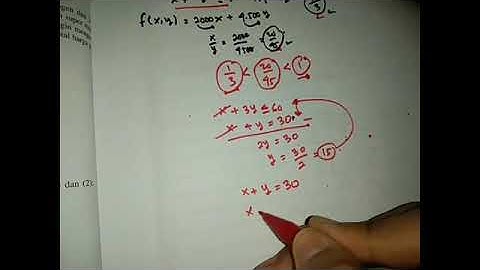 f(x,y) = 2000x + 4.500y
x/y = 2000/4500 = 20/45
1/3 < 20/45 < 1
x + 3y ≤ 60
x + y = 30 -
2y = 30
y = 30/2 = 15
x + y = 30
x
dan (2).